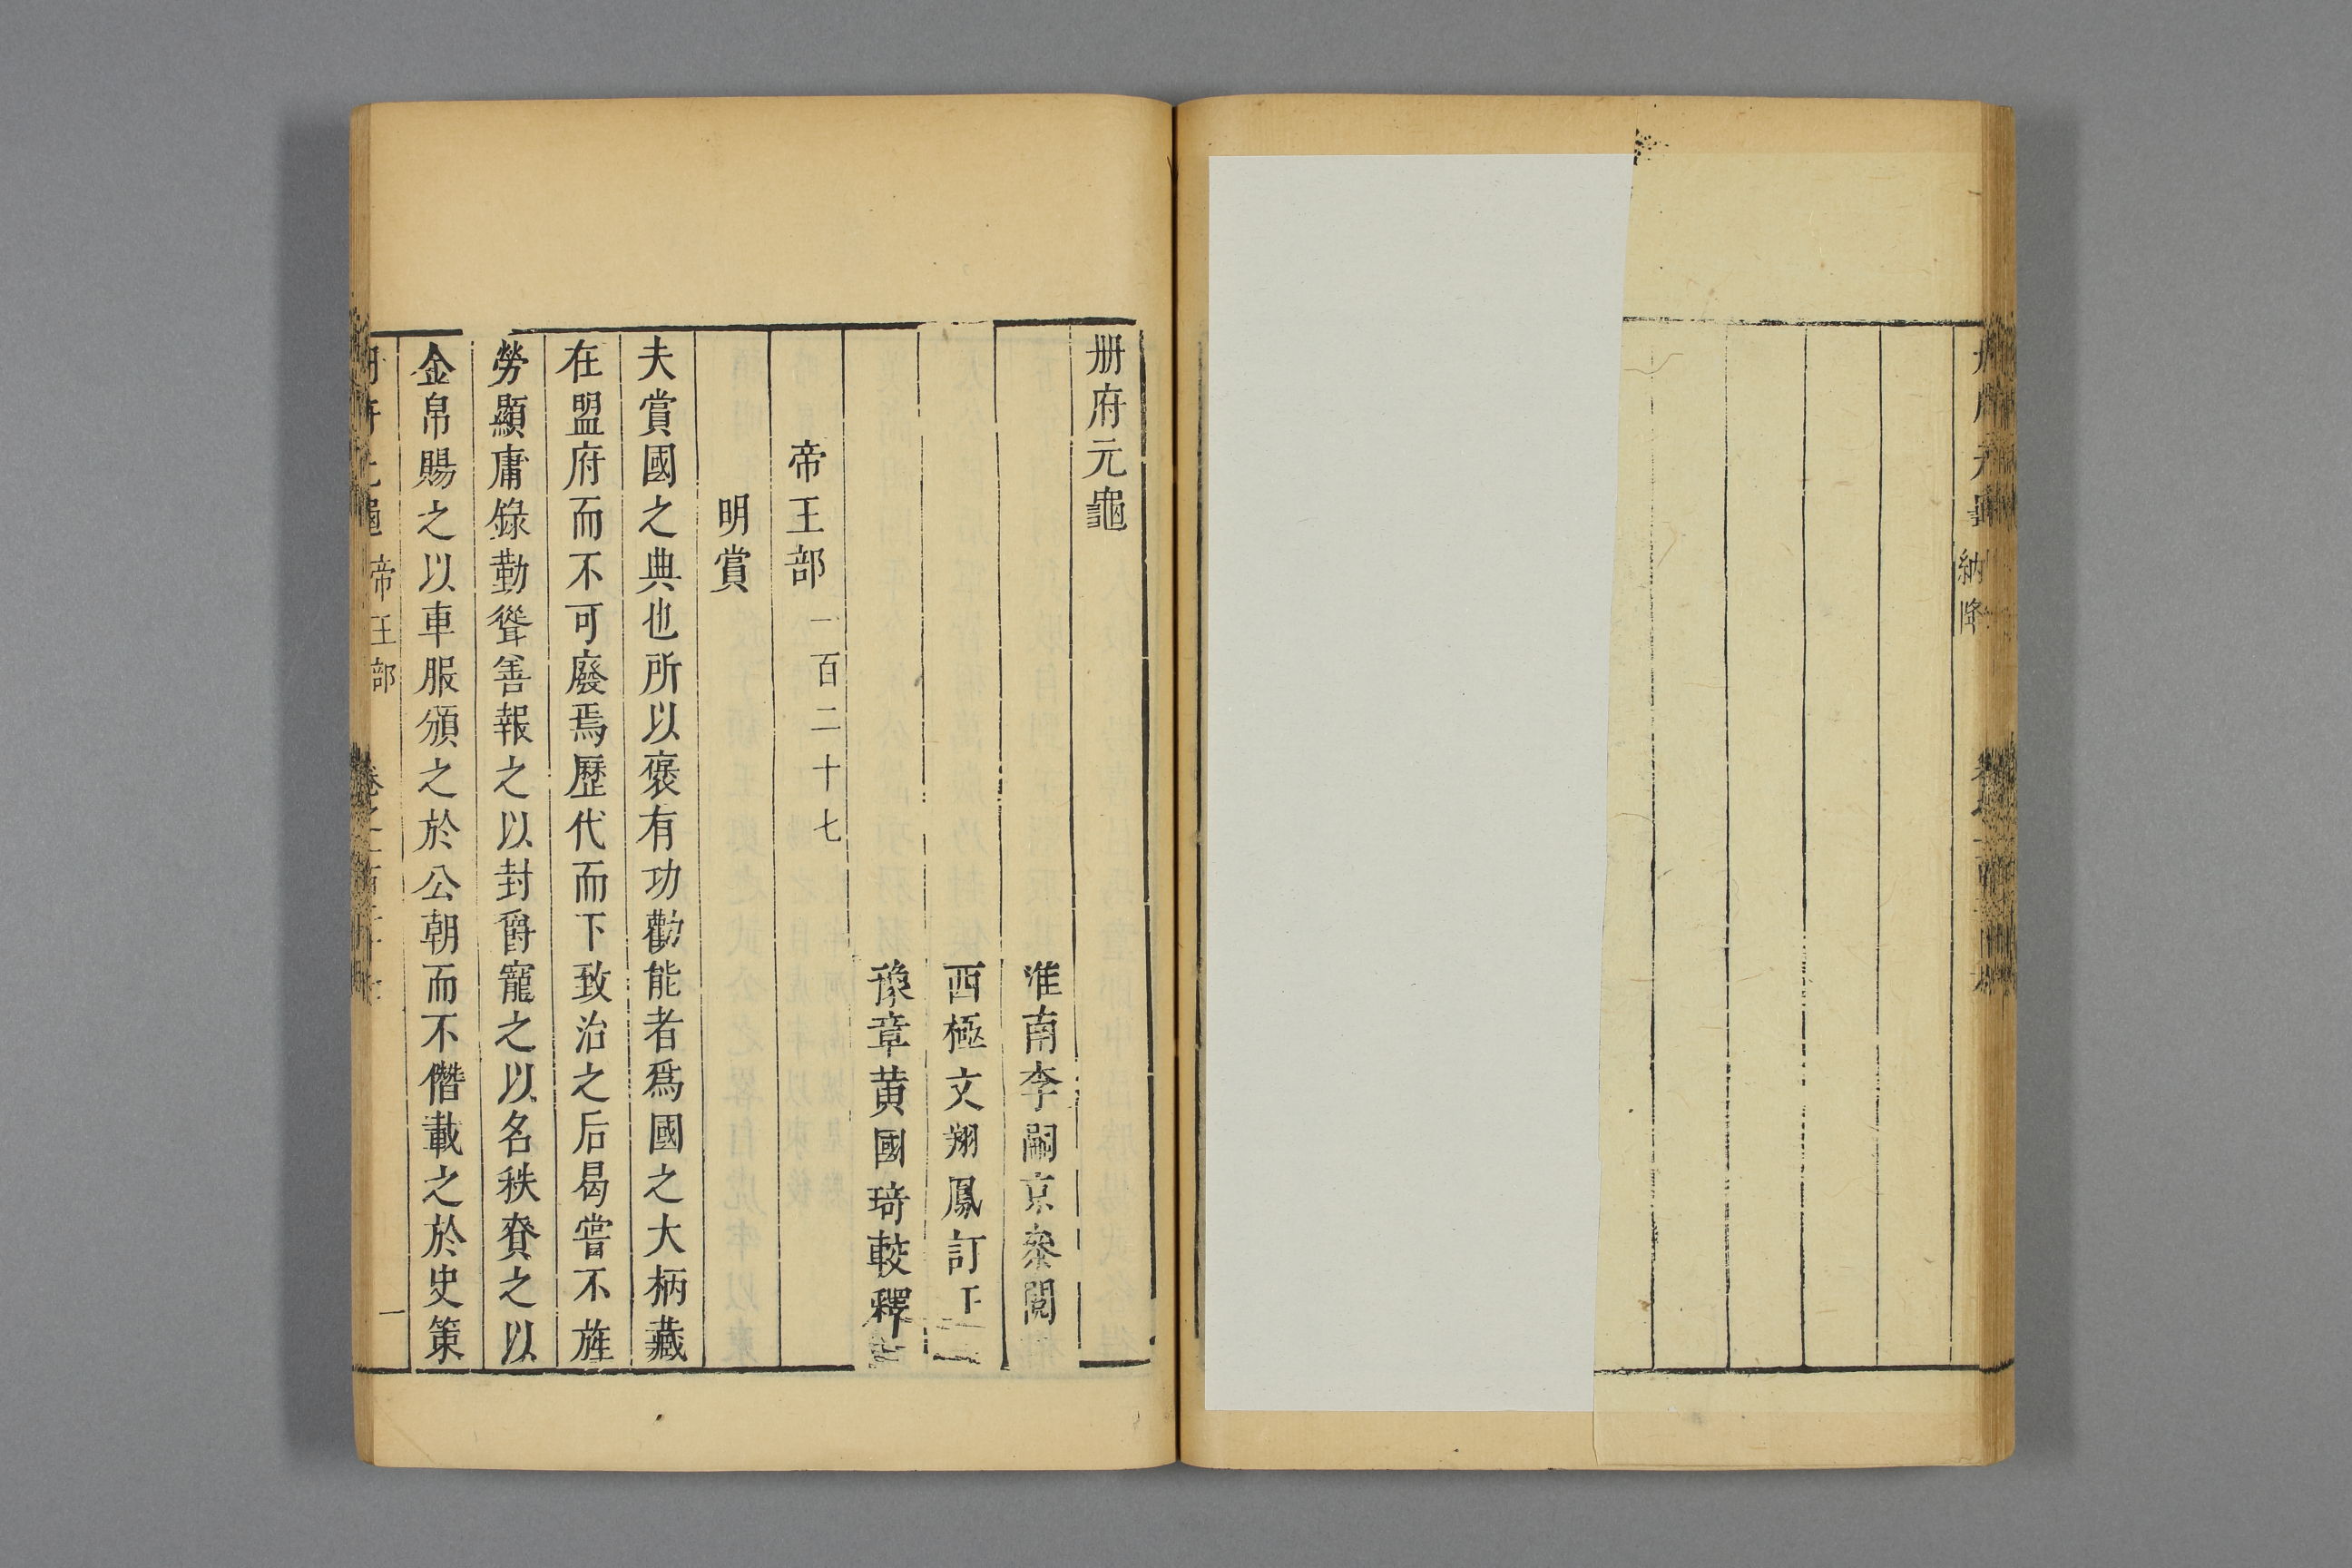 納降
册府元龜
淮南李嗣京叅閲
西極文翔鳳訂正
豫章黄國琦較釋
帝王部一百二十七
明賞
夫賞國之典也所以褒有功勸能者爲國之大柄藏
在盟府而不可廢焉歷代而下致治之后曷嘗不旌
勞顯庸錄勤聳善報之以封爵寵之以名秩賚之以
金帛賜之以車服頒之於公朝而不僭載之於史策
帝王部
一